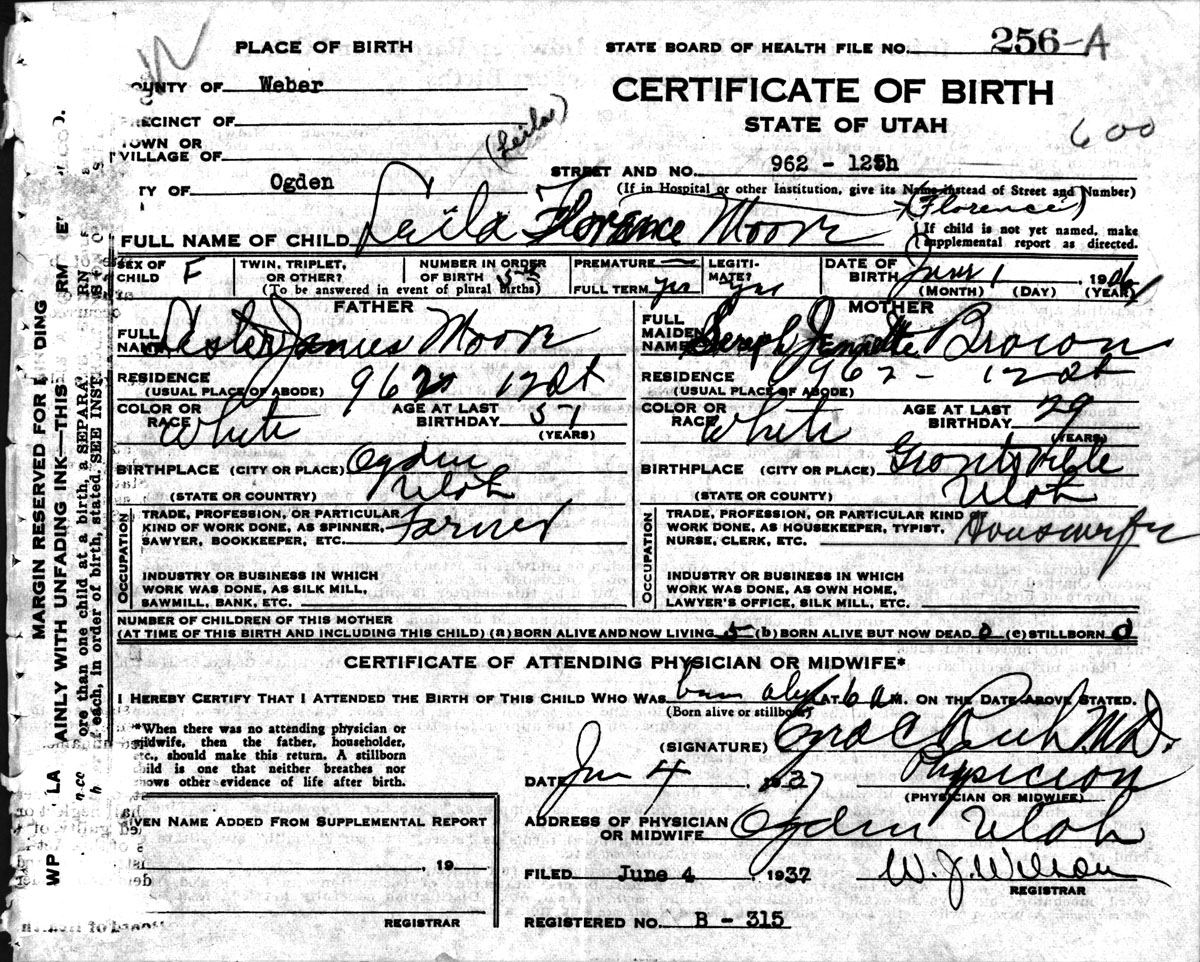 PLACE OF BIRTH
STATE BOARD OF HEALTH FILE NO. 256-A
OUNTY OF Weber
CERTIFICATE OF BIRTH
STATE OF UTAH
600
PRECINCT OF
TOWN OR
VILLAGE OF
(Leila)
STREET AND NO. 962 - 125h
TY OF Ogden
(If in Hospital or other Institution, give its Name instead of Street and Number)
(Florence)
FULL NAME OF CHILD Leila Florance Moore
If child is not yet named, make
supplemental report as directed.
SEX OF
CHILD F
TWIN, TRIPLET,
OR OTHER?
NUMBER IN ORDER
OF BIRTH
(To be answered in event of plural births)
PREMATURE
FULL TERM yes
LEGITI-
MATE? yes
DATE OF
BIRTH June 1, 19
(MONTH) (DAY) (YEAR)
FATHER
FULL
NAME Lester James Moore
RESIDENCE
(USUAL PLACE OF ABODE) 962 12 St
COLOR OR
RACE White
AGE AT LAST
BIRTHDAY 51
(YEARS)
BIRTHPLACE (CITY OR PLACE) Ogden
(STATE OR COUNTRY) Utah
OCCUPATION
TRADE, PROFESSION, OR PARTICULAR
KIND OF WORK DONE, AS SPINNER,
SAWYER, BOOKKEEPER, ETC. Farmer
INDUSTRY OR BUSINESS IN WHICH
WORK WAS DONE, AS SILK MILL,
SAWMILL, BANK, ETC.
MOTHER
FULL
MAIDEN
NAME Seraph Jennette Brown
RESIDENCE
(USUAL PLACE OF ABODE) 962 - 12 St
COLOR OR
RACE White
AGE AT LAST
BIRTHDAY 29
(YEARS)
BIRTHPLACE (CITY OR PLACE) Grantsville
(STATE OR COUNTRY) Utah
OCCUPATION
TRADE, PROFESSION, OR PARTICULAR KIND OF
WORK DONE, AS HOUSEKEEPER, TYPIST,
NURSE, CLERK, ETC. Housewife
INDUSTRY OR BUSINESS IN WHICH
WORK WAS DONE, AS OWN HOME,
LAWYER'S OFFICE, SILK MILL, ETC.
NUMBER OF CHILDREN OF THIS MOTHER
(AT TIME OF THIS BIRTH AND INCLUDING THIS CHILD) (a) BORN ALIVE AND NOW LIVING 5 (b) BORN ALIVE BUT NOW DEAD 0 (c) STILLBORN 0
CERTIFICATE OF ATTENDING PHYSICIAN OR MIDWIFE*
I HEREBY CERTIFY THAT I ATTENDED THE BIRTH OF THIS CHILD WHO WAS born alive AT 6 a M. ON THE DATE ABOVE STATED.
(Born alive or stillborn)
*When there was no attending physician or
midwife, then the father, householder,
etc., should make this return. A stillborn
child is one that neither breathes nor
shows other evidence of life after birth.
(SIGNATURE) Ezra C Rich M.D.
DATE Jun 4, 1937 Physician
(PHYSICIAN OR MIDWIFE)
ADDRESS OF PHYSICIAN
OR MIDWIFE Ogden Utah
IVEN NAME ADDED FROM SUPPLEMENTAL REPORT
, 19
REGISTRAR
FILED June 4, 1937 W. J. Wilson
REGISTRAR
REGISTERED NO. B - 315
MARGIN RESERVED FOR
NDING
AINLY WITH UNFADING INK—THIS
ore than one child at a birth, a SEPARA
f each, in order of birth, stated. SEE INST